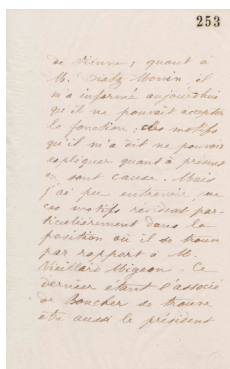 253
de Vienne; quant à
M. Dietz Monin, il
m'a informé aujourd'hui
qu'il ne pouvait accepter
la fonction; des motifs
qu'il m'a dit ne pouvoir
expliquer quant à présent
en sont cause. Mais
j'ai pu entrevoir que
ces motifs résident par-
ticulièrement dans la
position où il se trouve
par rapport à M.
Vieillard Migeon. Ce
dernier étant l'associé
de Boucher se trouve
être aussi le président